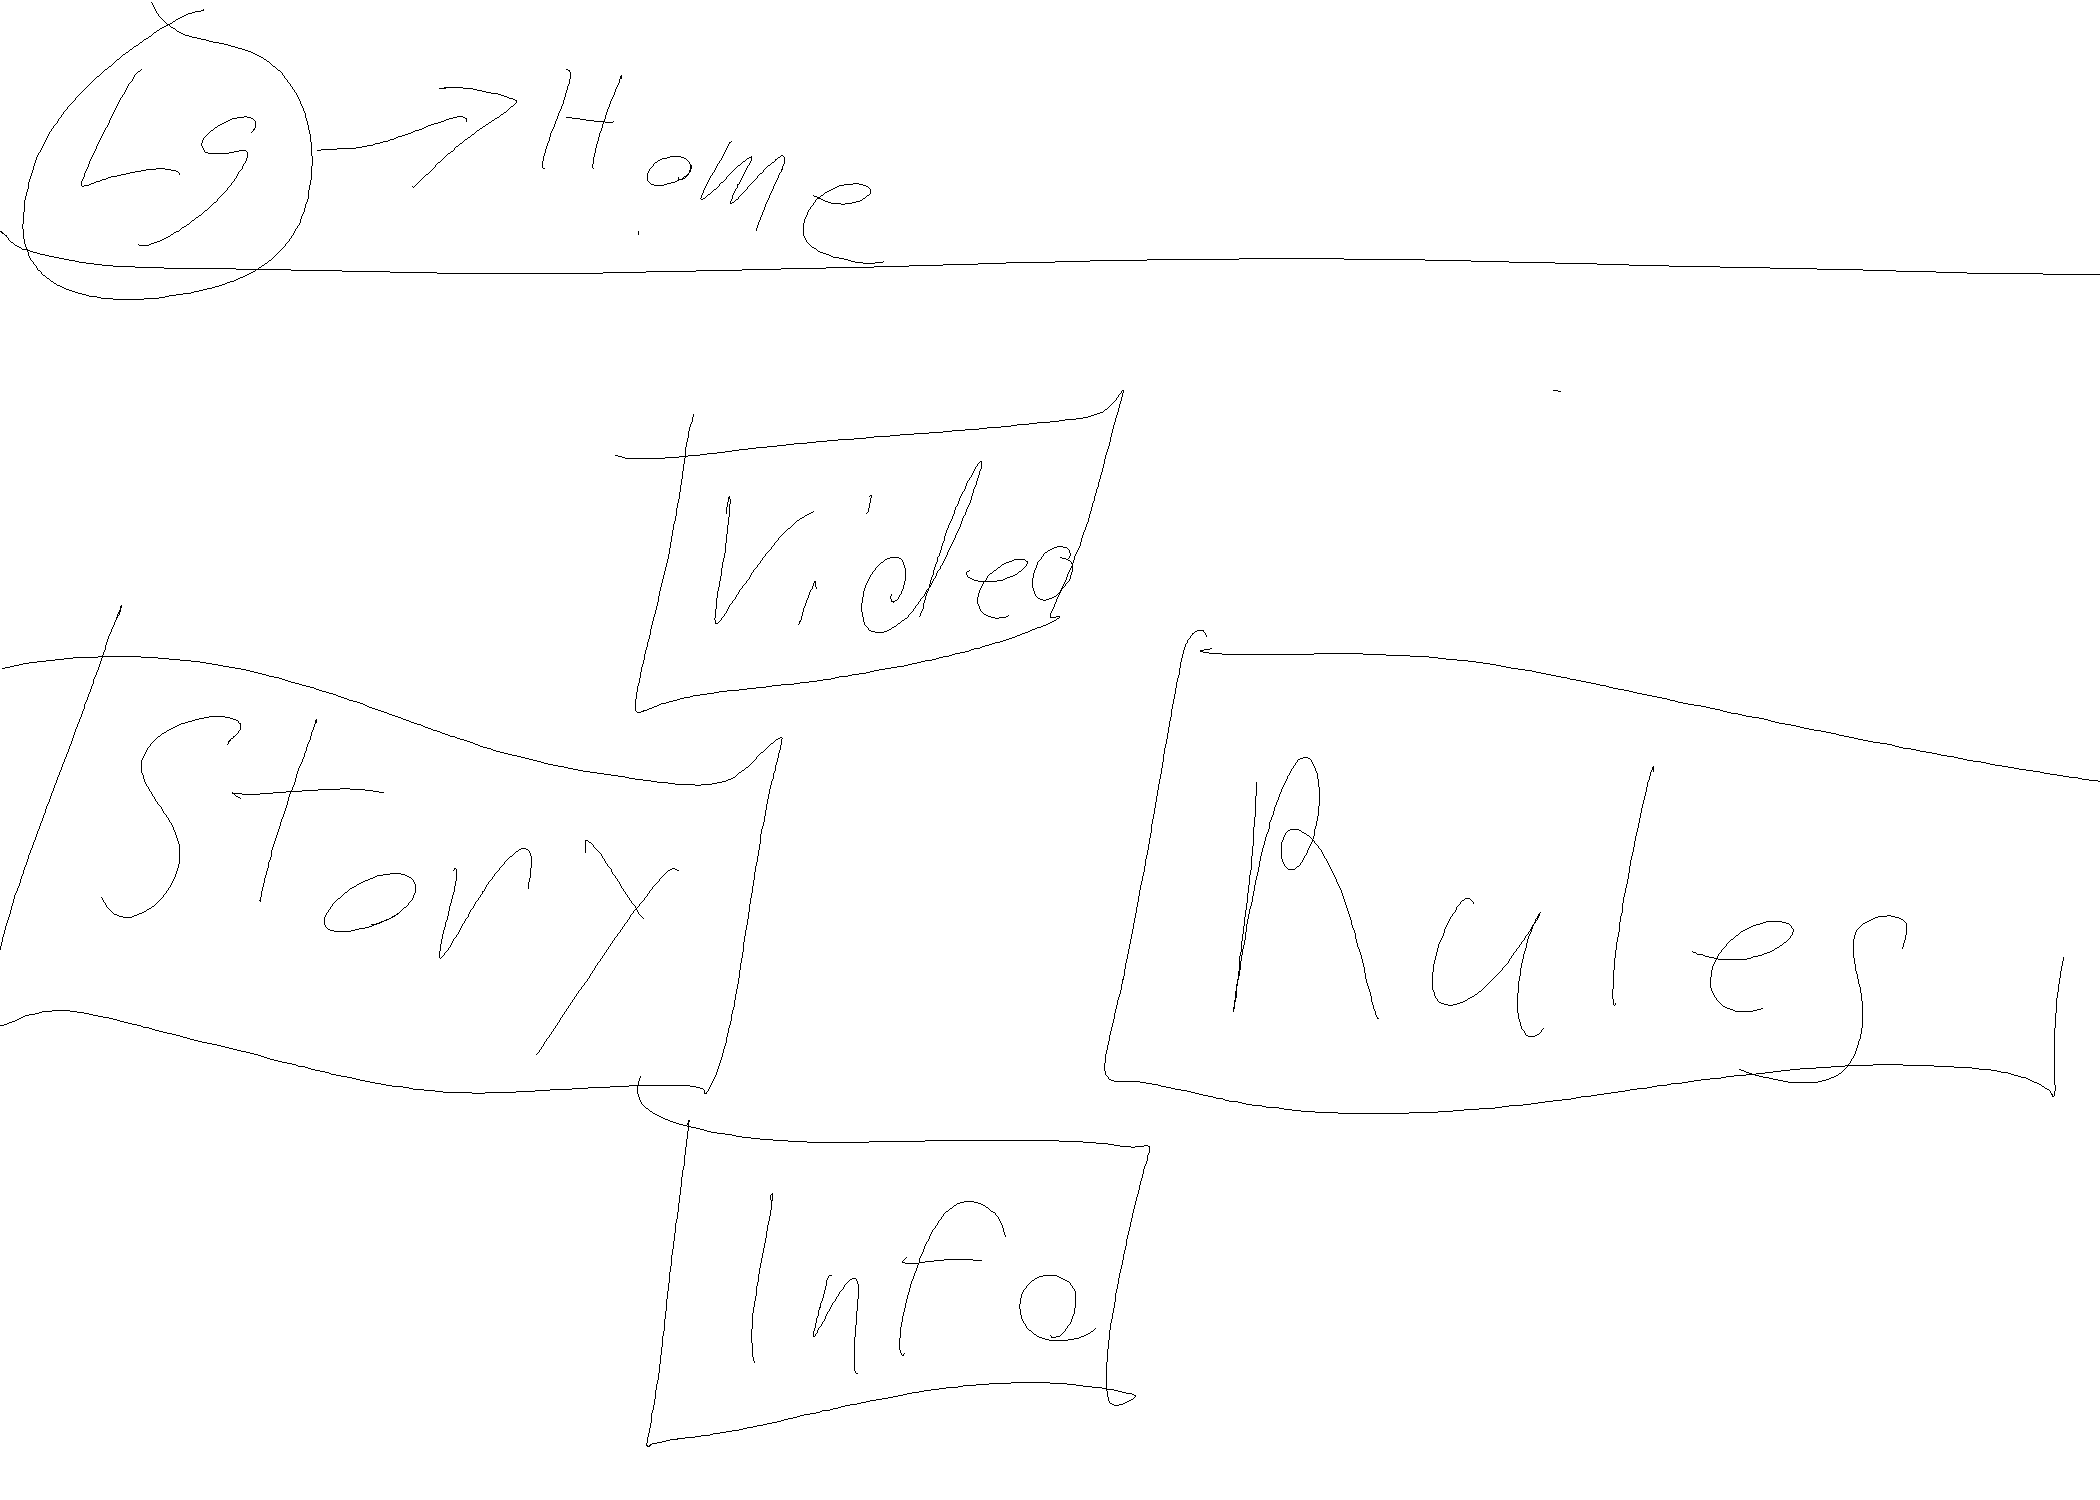 Lg → Home
Video
Story
Rules
Info